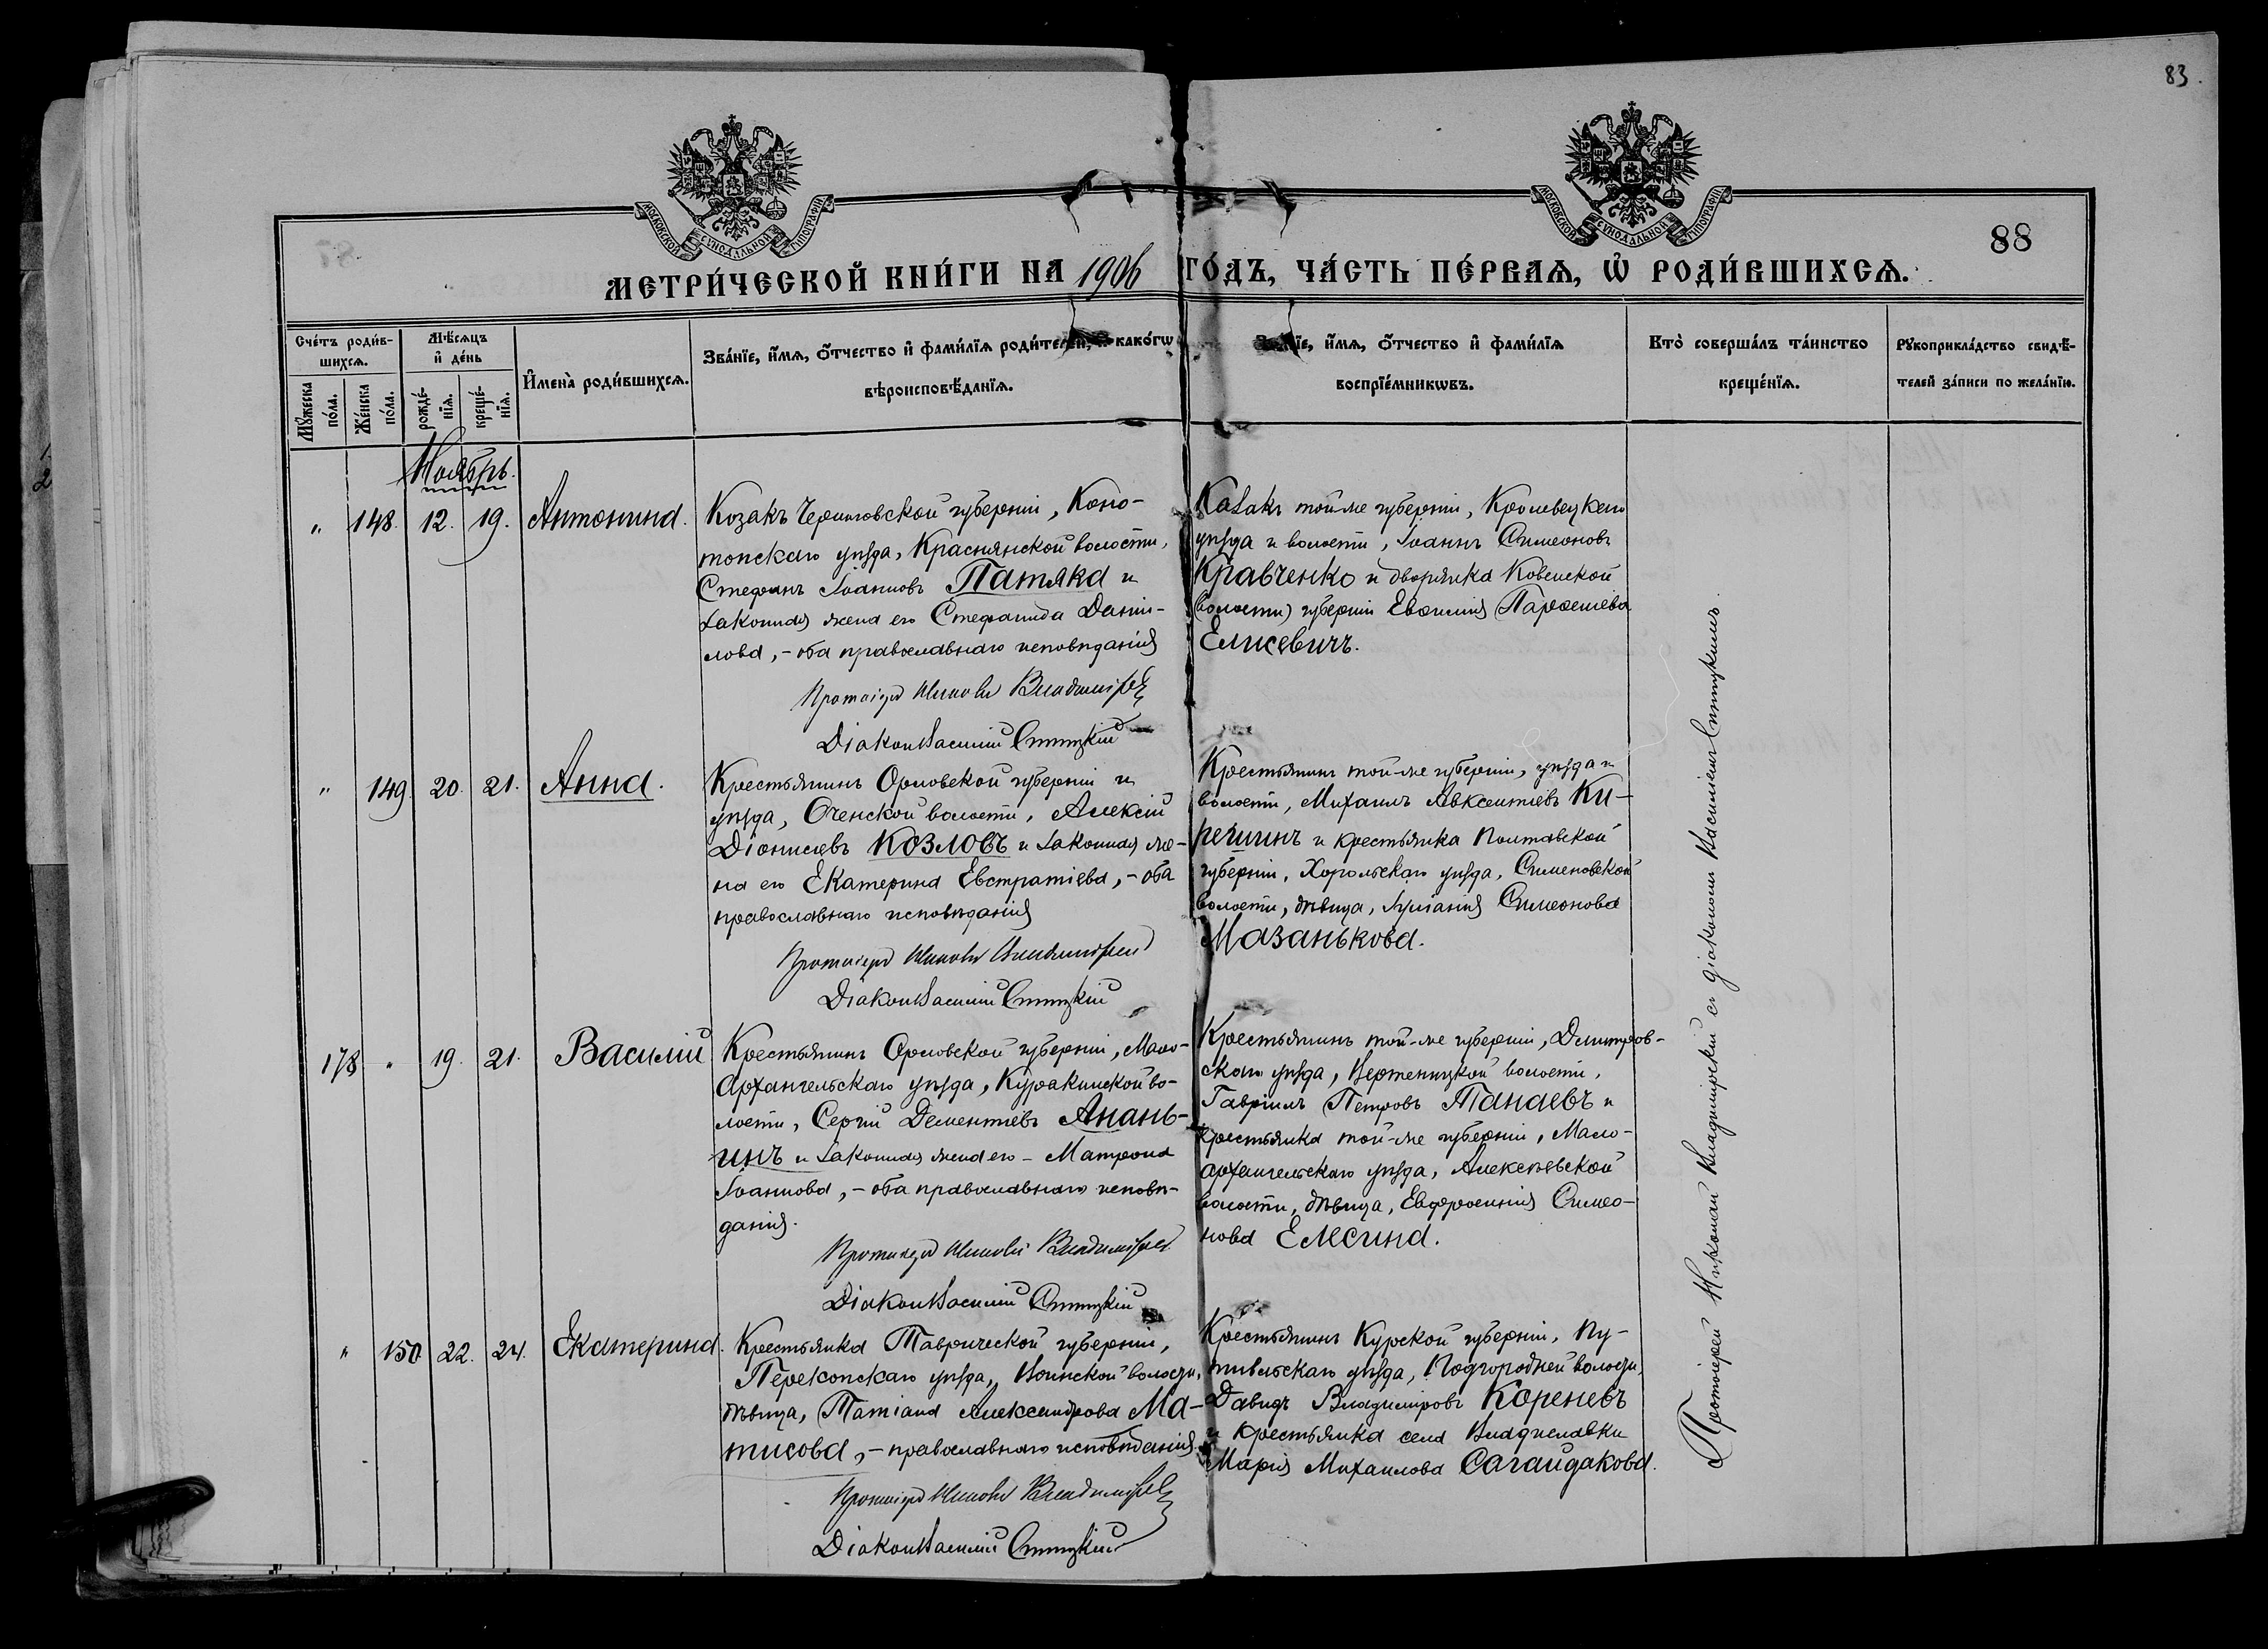 83.
МОСКОВСКОЙ СУНОДАЛЬНОЙ ТИПОГРАФІИ
МОСКОВСКОЙ СУНОДАЛЬНОЙ ТИПОГРАФІИ
88
МЕТРИ́ЧЕСКОЙ КНИ́ГИ НА 1906 ГО́ДЪ, ЧА́СТЬ ПЕ́РВАѦ, Ѡ҆ РОДИ́ВШИХСѦ.
Сче́тъ роди́в-
шихсѧ.
Мꙋ́жеска
по́ла.
Же́нска
по́ла.
Мѣ́сѧцъ
и҆ де́нь
рожде́-
нїѧ.
креще́-
нїѧ.
И҆мена̀ роди́вшихсѧ.
Зва́нїе, и҆́мѧ, ѻ҆́тчество и҆ фами́лїѧ роди́телей, како́гѡ
вѣроисповѣ́данїѧ.
Зва́нїе, и҆́мѧ, ѻ҆́тчество и҆ фами́лїѧ
воспрїе́мникѡвъ.
Кто̀ соверша́лъ та́инство
креще́нїѧ.
Рꙋкоприкла́дство свидѣ́-
телей за́писи по жела́нїю.
Ноябрь.
" 148. 12. 19. Антонина.
Козакъ Черниговской губерніи, Коно-
топскаго уѣзда, Краснянской волости,
Стефанъ Іоанновъ Патяка и
законная жена его Стефанида Дани-
лова, - оба православнаго исповѣданія
Протоіерей Никонъ Владимірскій
Діаконъ Василій
Казакъ той-же губерніи, Кролевецкаго
уѣзда и волости, Іоаннъ Симеоновъ
Кравченко и дворянка Ковенской
(волости) губерніи Евфимія
Елисевичъ.
" 149. 20. 21. Анна.
Крестьянинъ Орловской губерніи и
уѣзда, волости, Алексій
Діонисіевъ Козловъ и законная же-
на его Екатерина Евстратіева, - оба
православнаго исповѣданія
Протоіерей Никонъ Владимірскій
Діаконъ Василій
Крестьянинъ той-же губерніи, уѣзда и
волости, Михаилъ Авксентіевъ Ки-
речинъ и крестьянка Полтавской
губерніи, Хорольскаго уѣзда, Сименовской
волости, дѣвица, Іуліанія Симеонова
Мазанькова.
178 " 19. 21. Василій
Крестьянинъ Орловской губерніи, Мало-
архангельскаго уѣзда, Куракинской во-
лости, Сергій Дементіевъ Анань-
инъ и законная жена его - Матрона
Іоаннова, - оба православнаго исповѣ-
данія.
Протоіерей Никонъ Владимірскій
Діаконъ Василій
Крестьянинъ той-же губерніи, Дмитров-
скаго уѣзда, волости,
Гавріилъ Петровъ Танаевъ и
крестьянка той-же губерніи, Мало-
архангельскаго уѣзда, Алексѣевской
волости, дѣвица, Евфросинія Симео-
нова Елесина.
" 150. 22. 24. Екатерина.
Крестьянка Таврической губерніи,
Перекопскаго уѣзда, Воинской волости,
дѣвица, Татіана Александрова Ма-
тисова, - православнаго исповѣданія.
Протоіерей Никонъ Владимірскій
Діаконъ Василій
Крестьянинъ Курской губерніи, Пу-
тивльскаго уѣзда, Подгородней волости,
Давидъ Владиміровъ Кореневъ
и крестьянка села Владиславки
Марія Михаилова Сагайдакова.
Протоіерей Владимірскій съ діакономъ Василіемъ